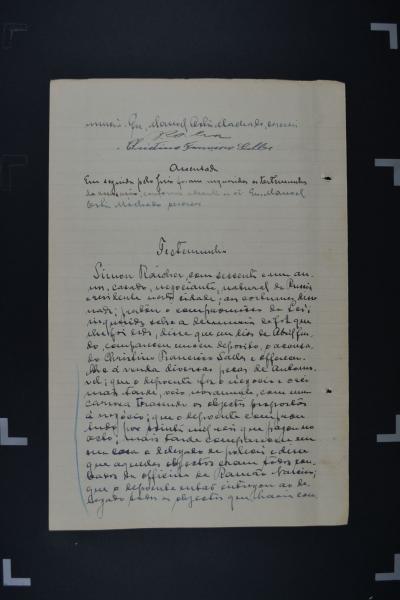 nuncia. Eu, Manoel Machado, escrevi
Christino Francisco Salles
Assentada
Em seguida pelo Juiz foram inqueridas as testemunhas
da denuncia, como adeante se vê. Eu, Manoel
Machado, escrevi.
Testemunha
Simon Raicher, com sessenta e um an-
nos, casado, negociante, natural da Russia
e residente nesta cidade; aos costumes disse
nada; prestou o compromisso da Lei;
inquirido sobre a denuncia de fls que
lhe foi lida, disse que em dias de Abril fin-
do, compareceu em seu deposito, o accusa-
do Christino Francisco Salles e offereceu-
lhe á venda diversas peças de automo-
vel; que o depoente fez o negocio e
mais tarde, veio novamente, com uma
carroça trazendo os objectos propostos
á negocio; que o depoente comprou
tudo por mil reis que pagou no
acto; mais tarde compareceu em
sua casa o delegado de policia e disse
que aquelles objectos eram todos rou-
bados da officina de Ramão
que o depoente então entregou ao de-
legado todos os objectos que havia com